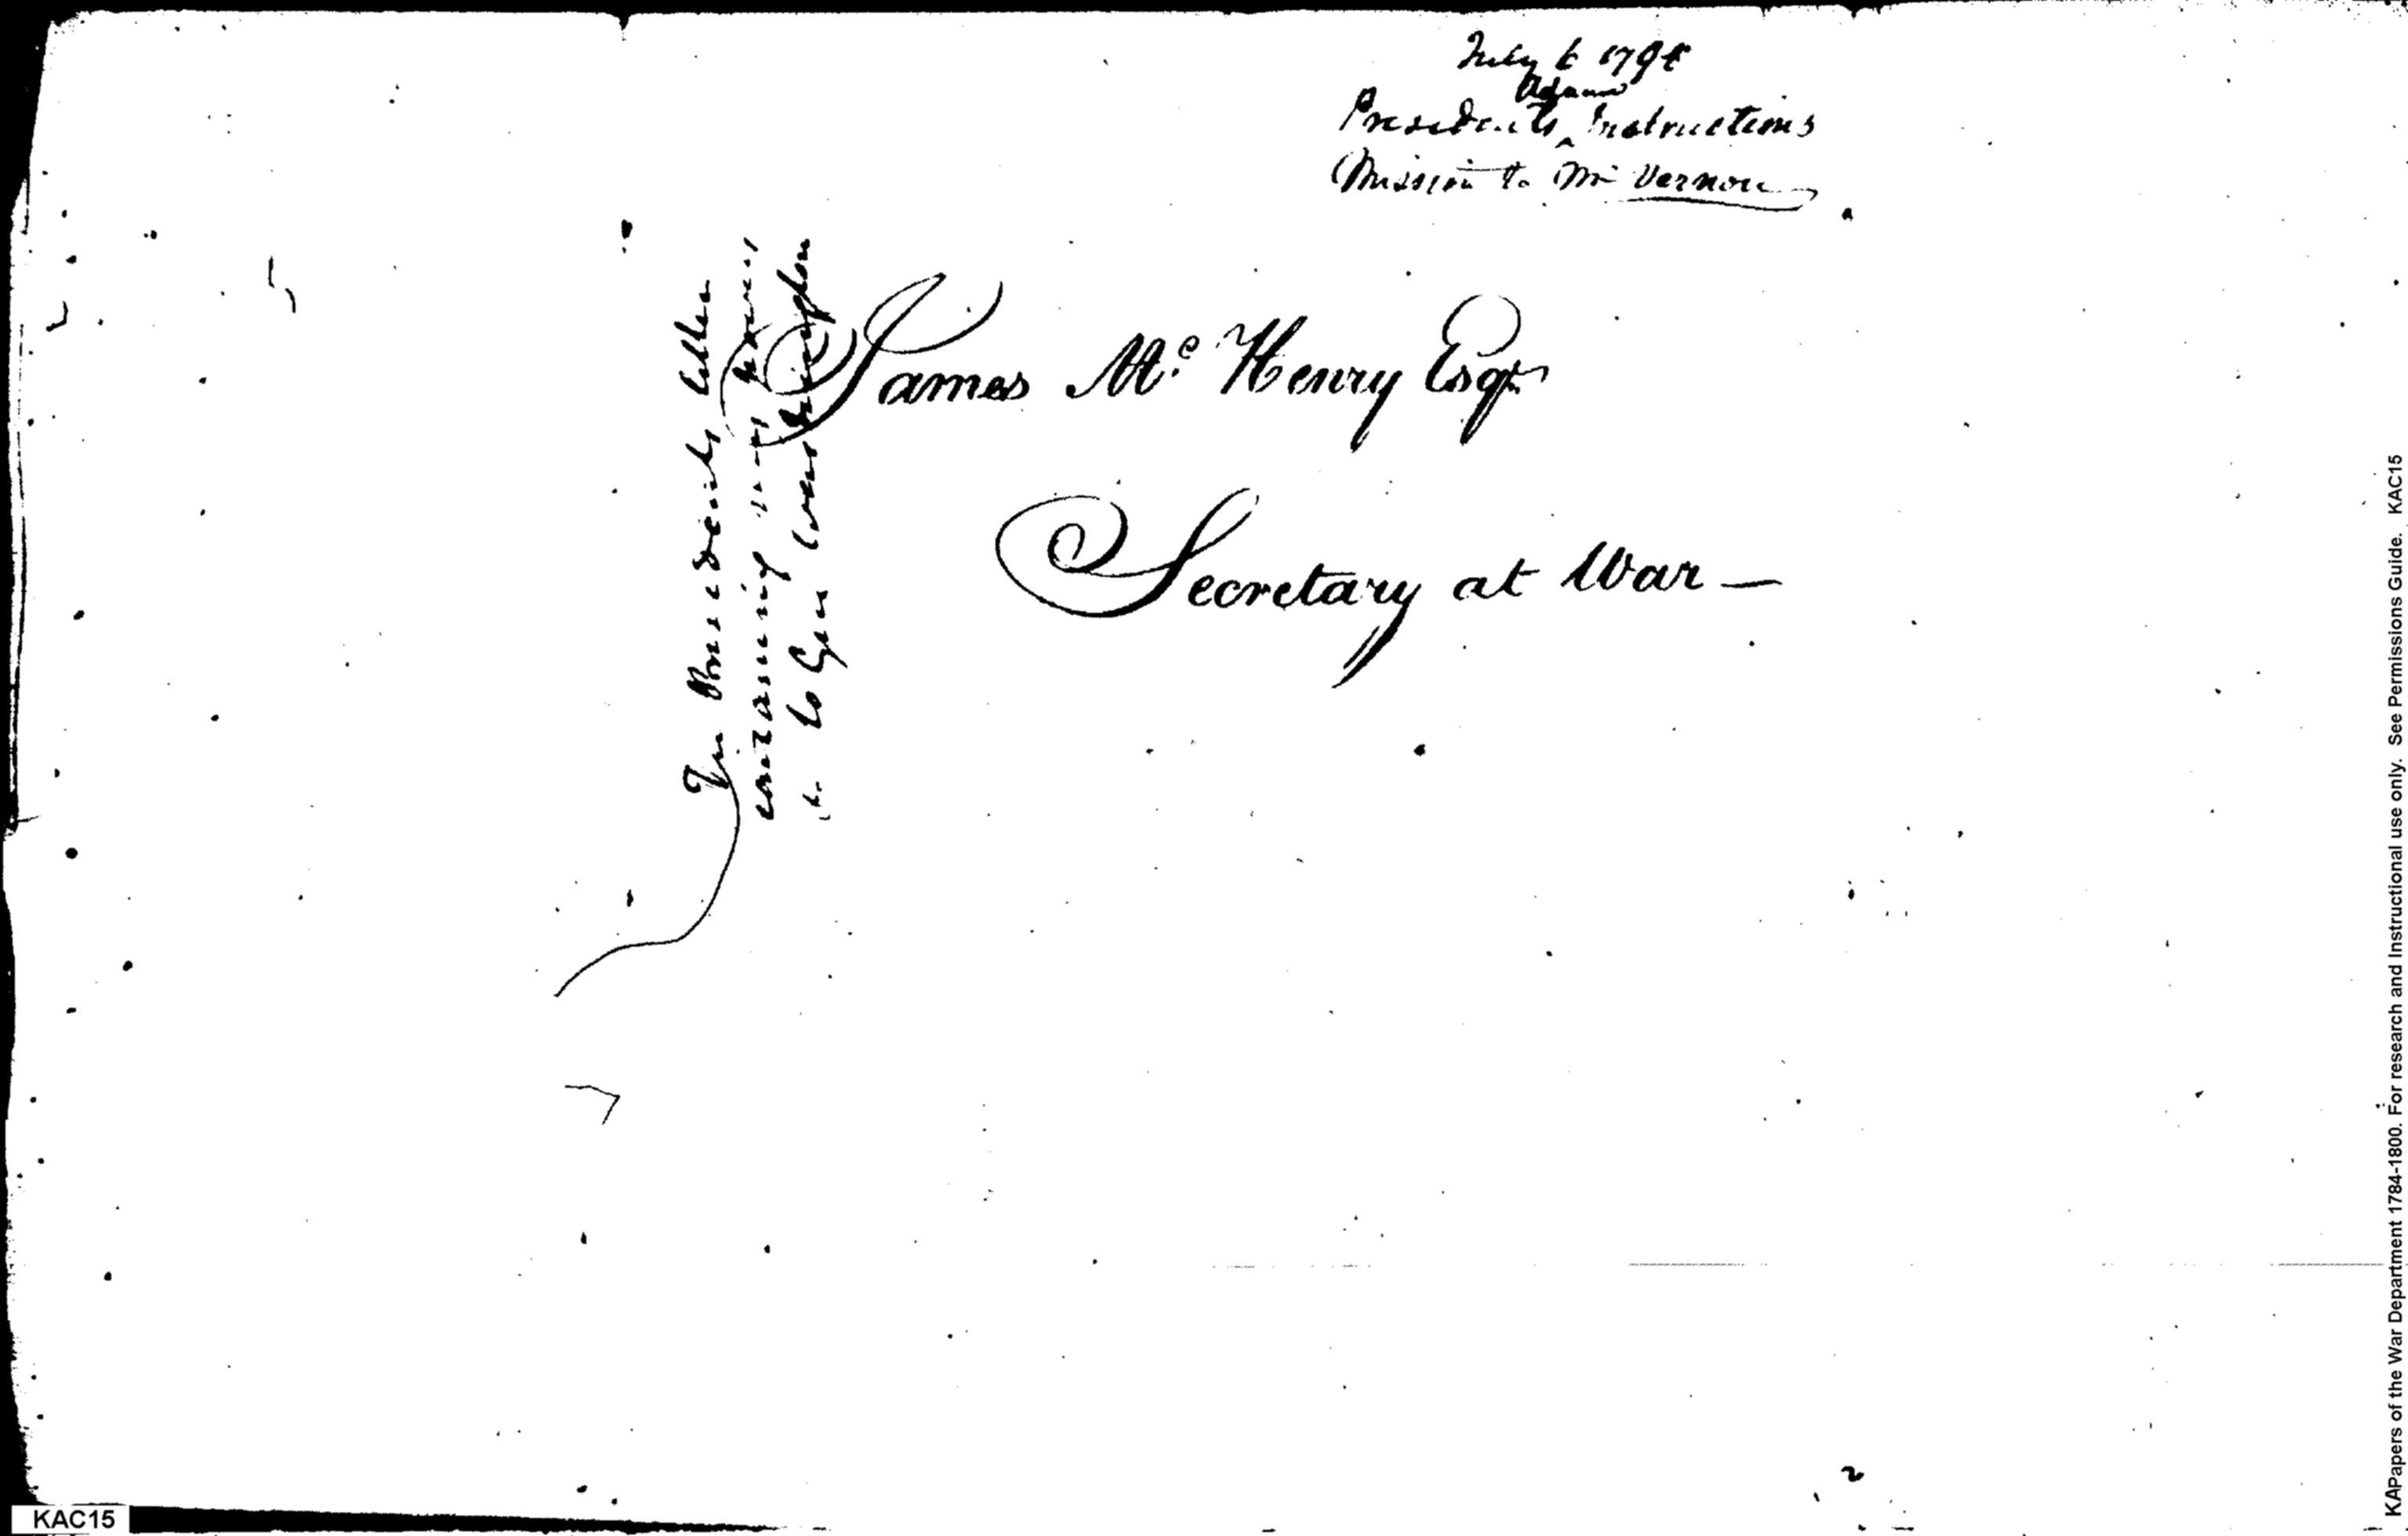 July 6 1798
Adams
Presidents ^ Instructions
Mission to Mt Vernon
James Mc. Henry Esqr
Secretary at War —
The Presidents letter
containing
to Gen
2
KAC15
KAPapers of the War Department 1784-1800. For research and Instructional use only. See Permissions Guide. KAC15